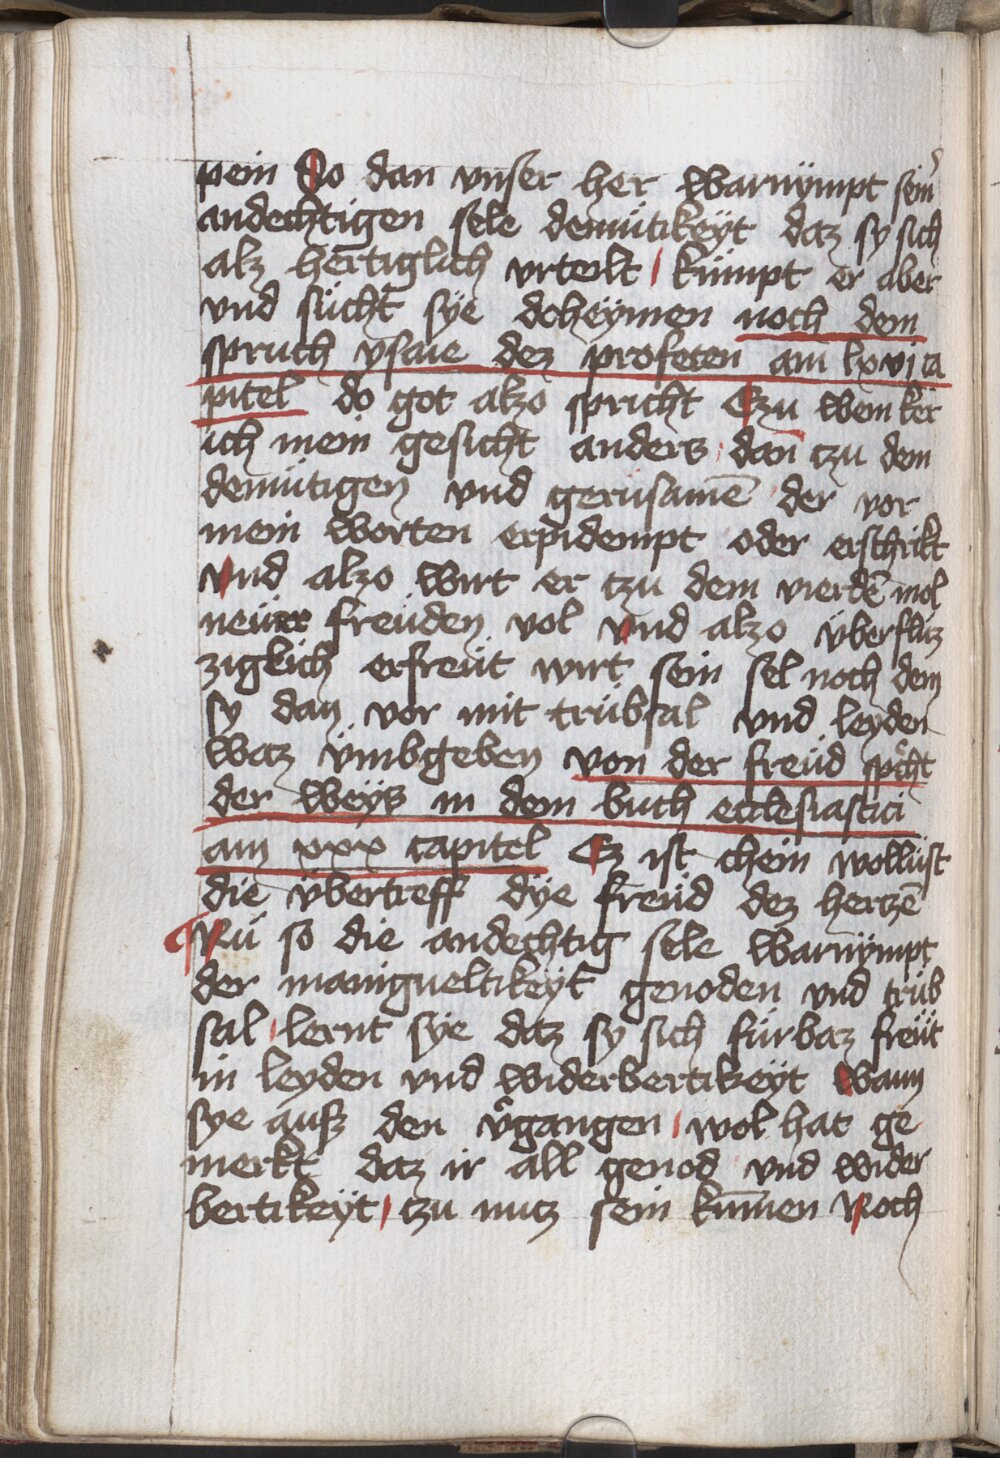 pein So dan vnser her warnÿmpt sein᷑
andechtigen sele demütikeyt daz sy sich
alz hertiglich vrteilt kümpt er aber
vnd sücht sÿe doheÿmen noch dem
spruch ysaie dez profeten am lxvi ca
pitel do got alzo spricht Czu wem ker
ich mein gesicht anders dan̄ tzu dem
demütigen vnd gerusamē der vor
mein worten erpidempt oder erschrikt
vnd alzo wirt er tzu dem vierdē mol
neüer freüden vol vnd alzo überflüz
ziglich erfreüt wirt sein sel noch dem
sy dan vor mit trübsal vnd leyden
waz ümbgeben von der freüd spͥcht
der weÿs in dem buch ecclesiastici
am xxx capitel Ez ist chein wollüst
die übertreff dÿe freüd dez hertzē
Nū so die andechtig sele warnÿmpt
der manigueltikeÿt genoden vnd trüb
sal lernt sÿe daz sy sich fürbaz freüt
in leyden vnd widerbertikeÿt wann
sye ausz den v᷑gangen wol hat ge
merkt daz ir all genod vnd wider
bertikeÿt tzu nutz sein kūmen Noch